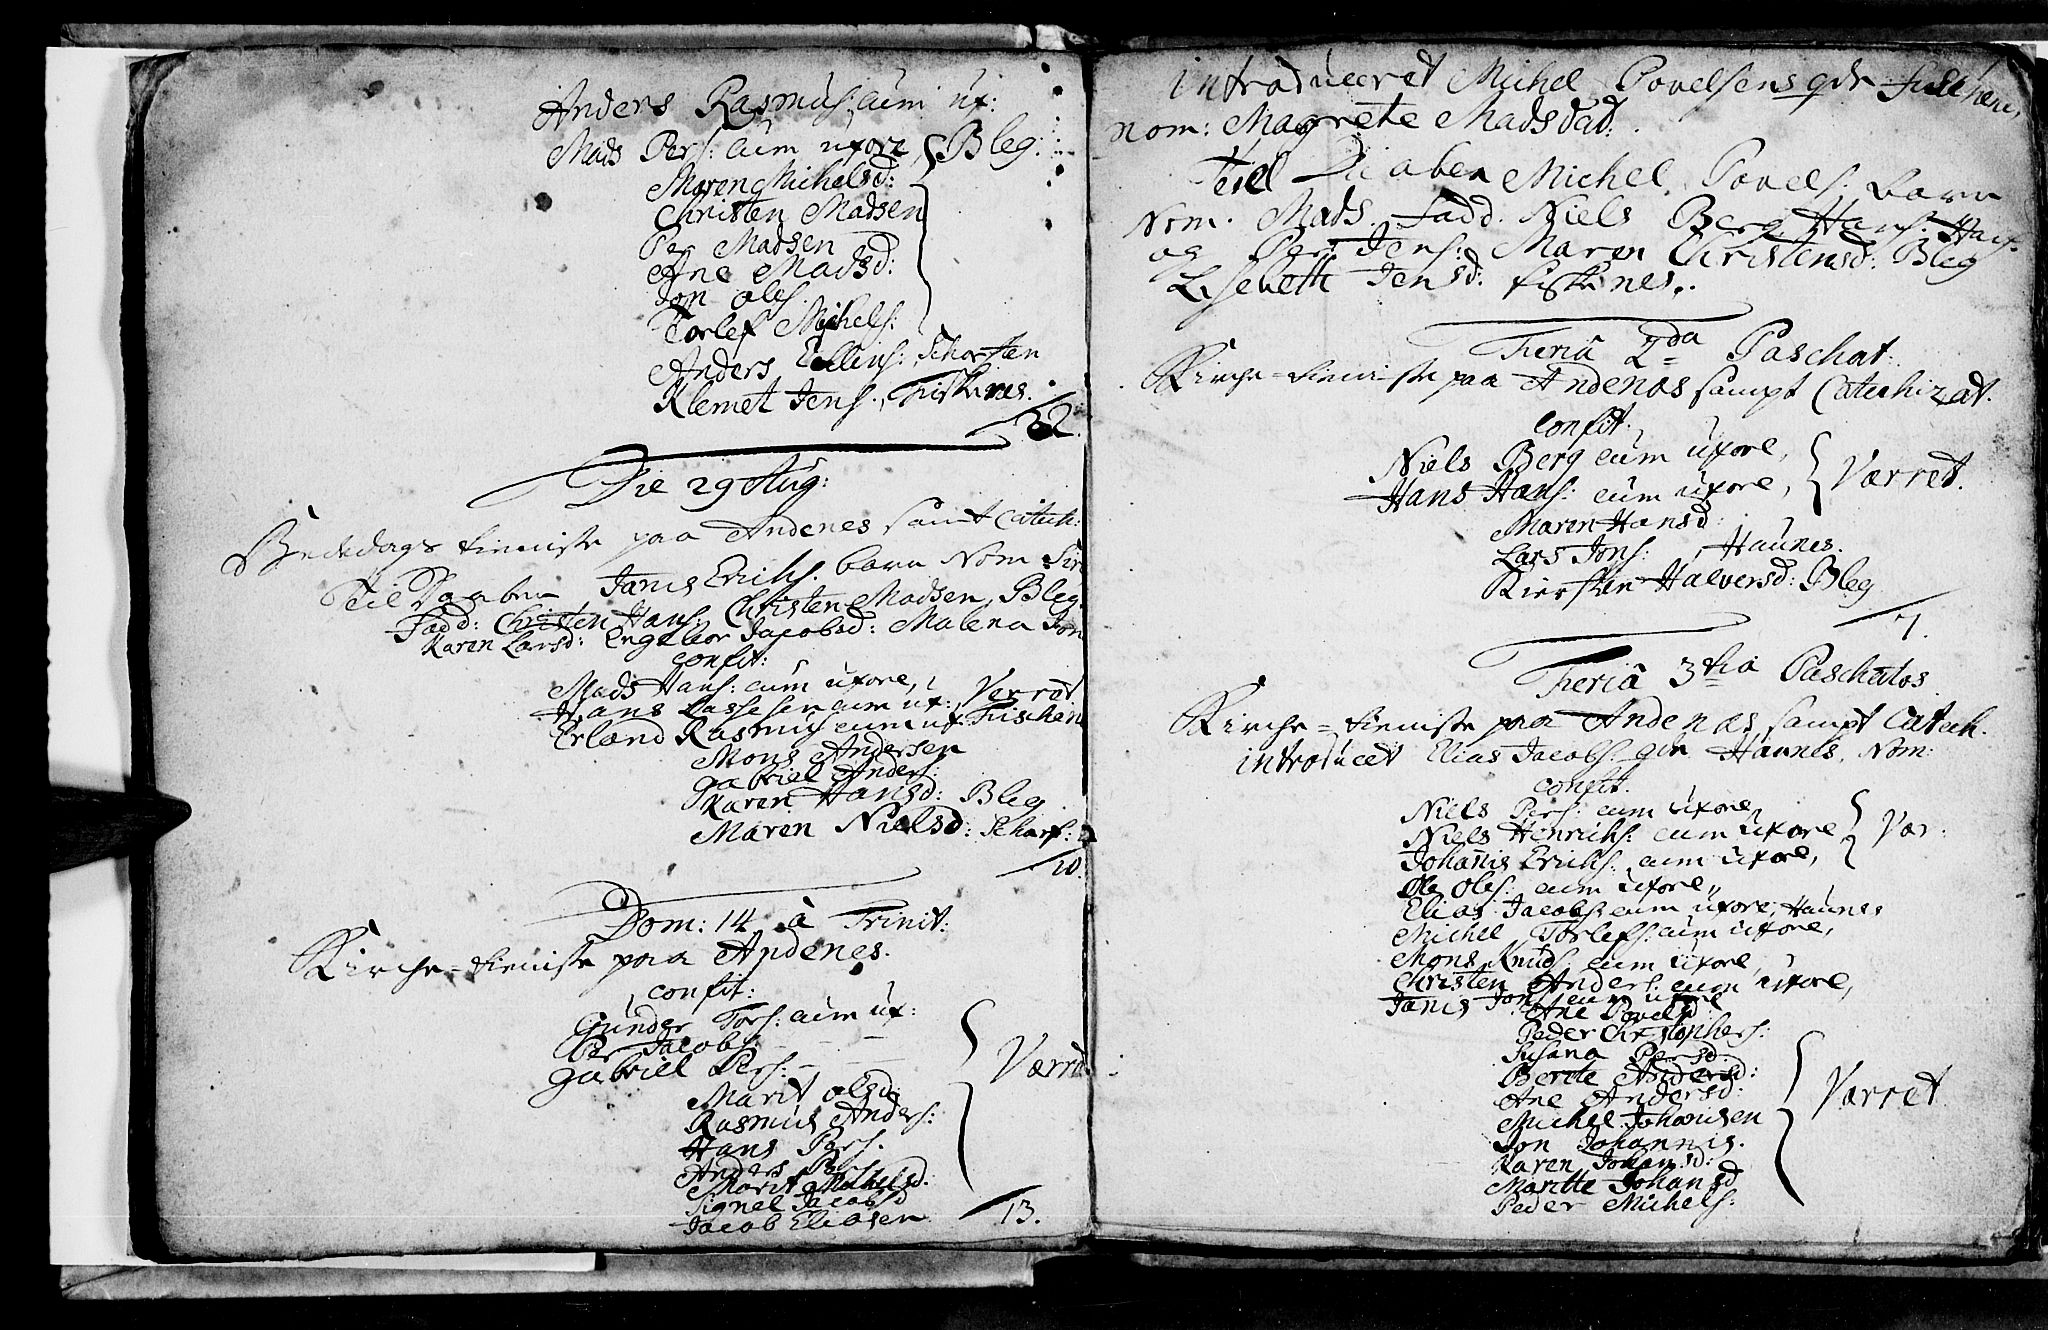 Anders Rasmus: cum ux:
Mads Pers: cum uxore, Bleg.
Maren Michelsd:
Christen Madsen
Per Madsen
Ane Madsd:
Jon Ols.
Torlef Michels:
Anders Ellins:
Klemet Jens., Fiskenes.
32.
Die 29 Aug:
Bededags tieniste paa Andenes samt Catech:
Teil Daaben Janis Erichs. barn Nom
Fadd: Christen Hans: Christen Madsen, Bleg
Karen Larsd: Engebor Jacobsd: Malena Jon
confit:
Mads Hans: cum uxore, Verret
Hans Lassesen cum ux:
Erland Rasmus cum ux.
Mons Andersen
gabriel Anders:
Karen Hansd: Bleg
Maren Nielsd:
10.
Dom: 14 à Trinit:
Kirche-tieniste paa Andenes.
confit:
Gunder Tors: cum ux:
Per Jacobs: - -
gabriell Pers: - -
Værret
Marit olsd:
Rasmus Anders:
Hans Pers.
Anders
Marit Michelsd.
Signel Jacobsd
Jacob Eliasen
13.
introduceret Michel Povelsens qde
nom: Magrete Madsdat.
Teil Daaben Michel Povels. barn
Nom. Mads. Fadd. Niels Berg, Hans: Hans.
og Per Jens: Maren Christensd: Bleg
Lisebeth Jensd: fiskenes.
Feria 2da Paschat:
Kirche-tieniste paa Andenæs sampt Catechizat.
confit.
Niels Berg cum uxore,
Hans Hans: cum uxore, Værret.
Maren Hansd:
Lars Jons: , Haunes.
Kiersten Halversd: Bleg
7.
Feria 3tia Paschatos
Kirche-tieniste paa Andenæs sampt Catech.
introducet Elias Jacobs qde Haunes, Nom:
confit.
Niels Pers: cum uxore,
Niels Henrichs: cum uxore Vær:
Johannis Erichs. cum uxore,
Ole Ols: cum uxore,
Elias Jacobs: cum uxore, Haunes
Michel Torlefs: cum uxore,
Mons Knuds: cum uxore,
Christen Anders: cum uxore,
Janis Jons: cum uxore
Ane Povelsd:
Peder Christophers:
Susana Persd:
Berete Andersd:
Ane Andersd:
Michel Johansen
Værret
Jon Johannis.
Karen Johansd:
Maritte Johansd
Peder Michels: